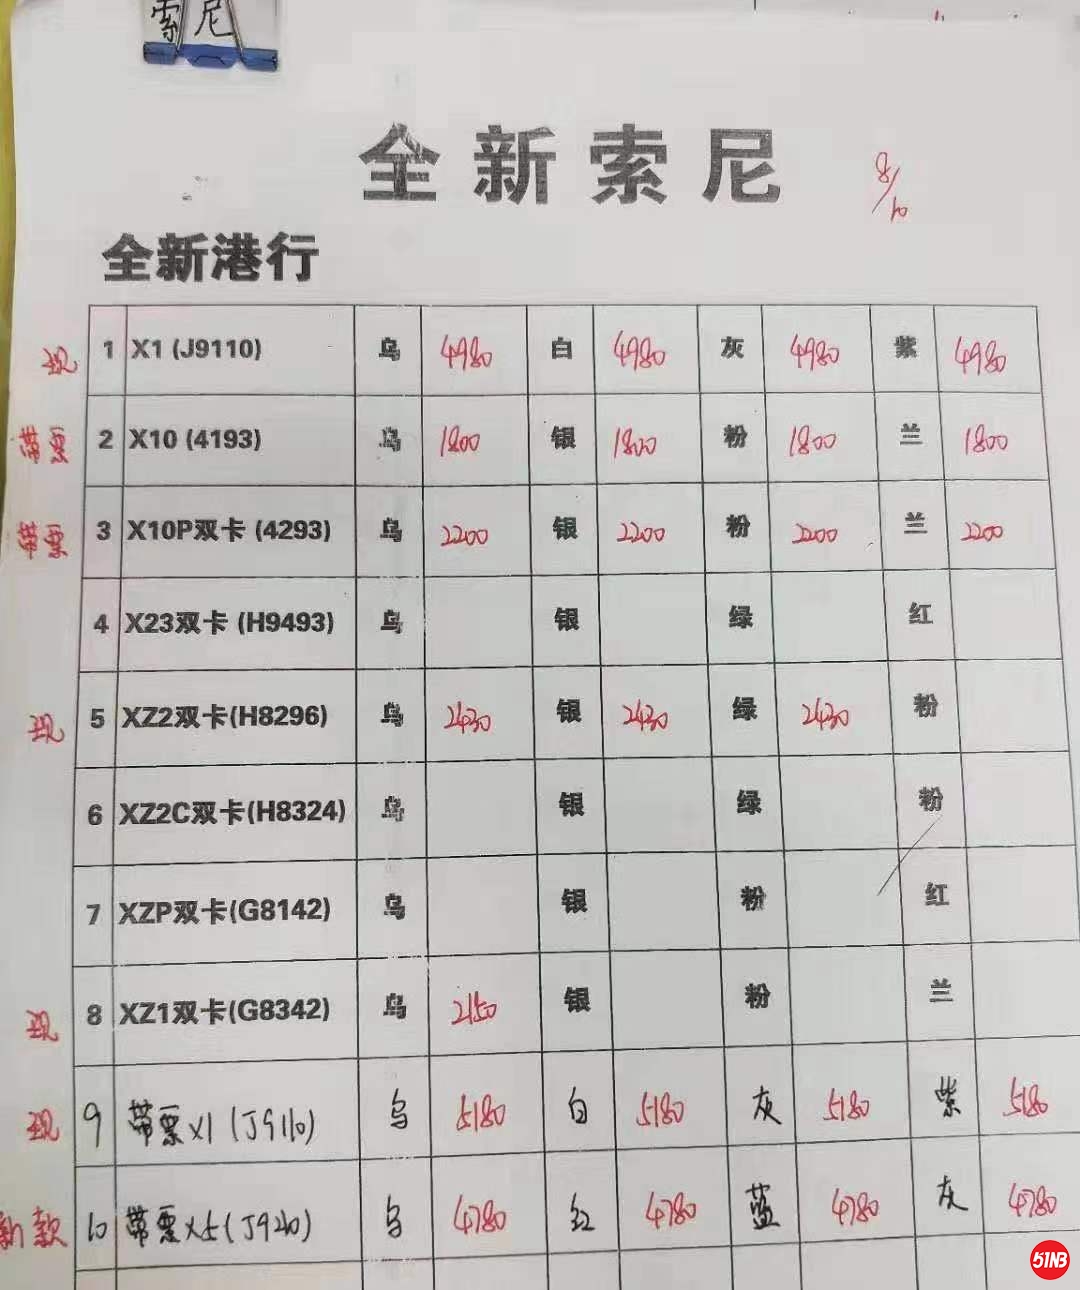 索尼
全新索尼 8/10
全新港行
现 1 X1 (J9110) 乌 4980 白 4980 灰 4980 紫 4980
带票 2 X10 (4193) 乌 1800 银 1800 粉 1800 兰 1800
带票 3 X10P双卡 (4293) 乌 2200 银 2200 粉 2200 兰 2200
4 X23双卡 (H9493) 乌 银 绿 红
现 5 XZ2双卡(H8296) 乌 2430 银 2430 绿 2430 粉
6 XZ2C双卡(H8324) 乌 银 绿 粉
7 XZP双卡(G8142) 乌 银 粉 红
现 8 XZ1双卡(G8342) 乌 2150 银 粉 兰
现 9 带票X1 (J9110) 乌 5180 白 5180 灰 5180 紫 5180
新款 10 带票X5 (J9210) 乌 4780 红 4780 蓝 4780 灰 4780
51NB